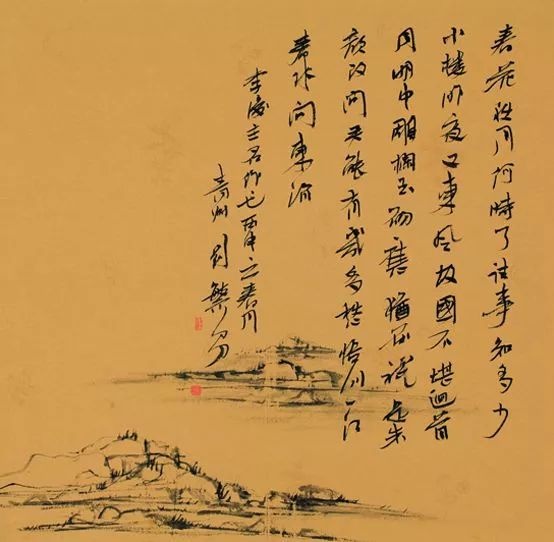 春花秋月何時了往事知多少
小樓昨夜又東風故國不堪迴首
月明中雕欄玉砌應猶在祇是朱
顏改問君能有幾多愁恰似一江
春水向東流
李後主名作乙酉之春月
青州劉